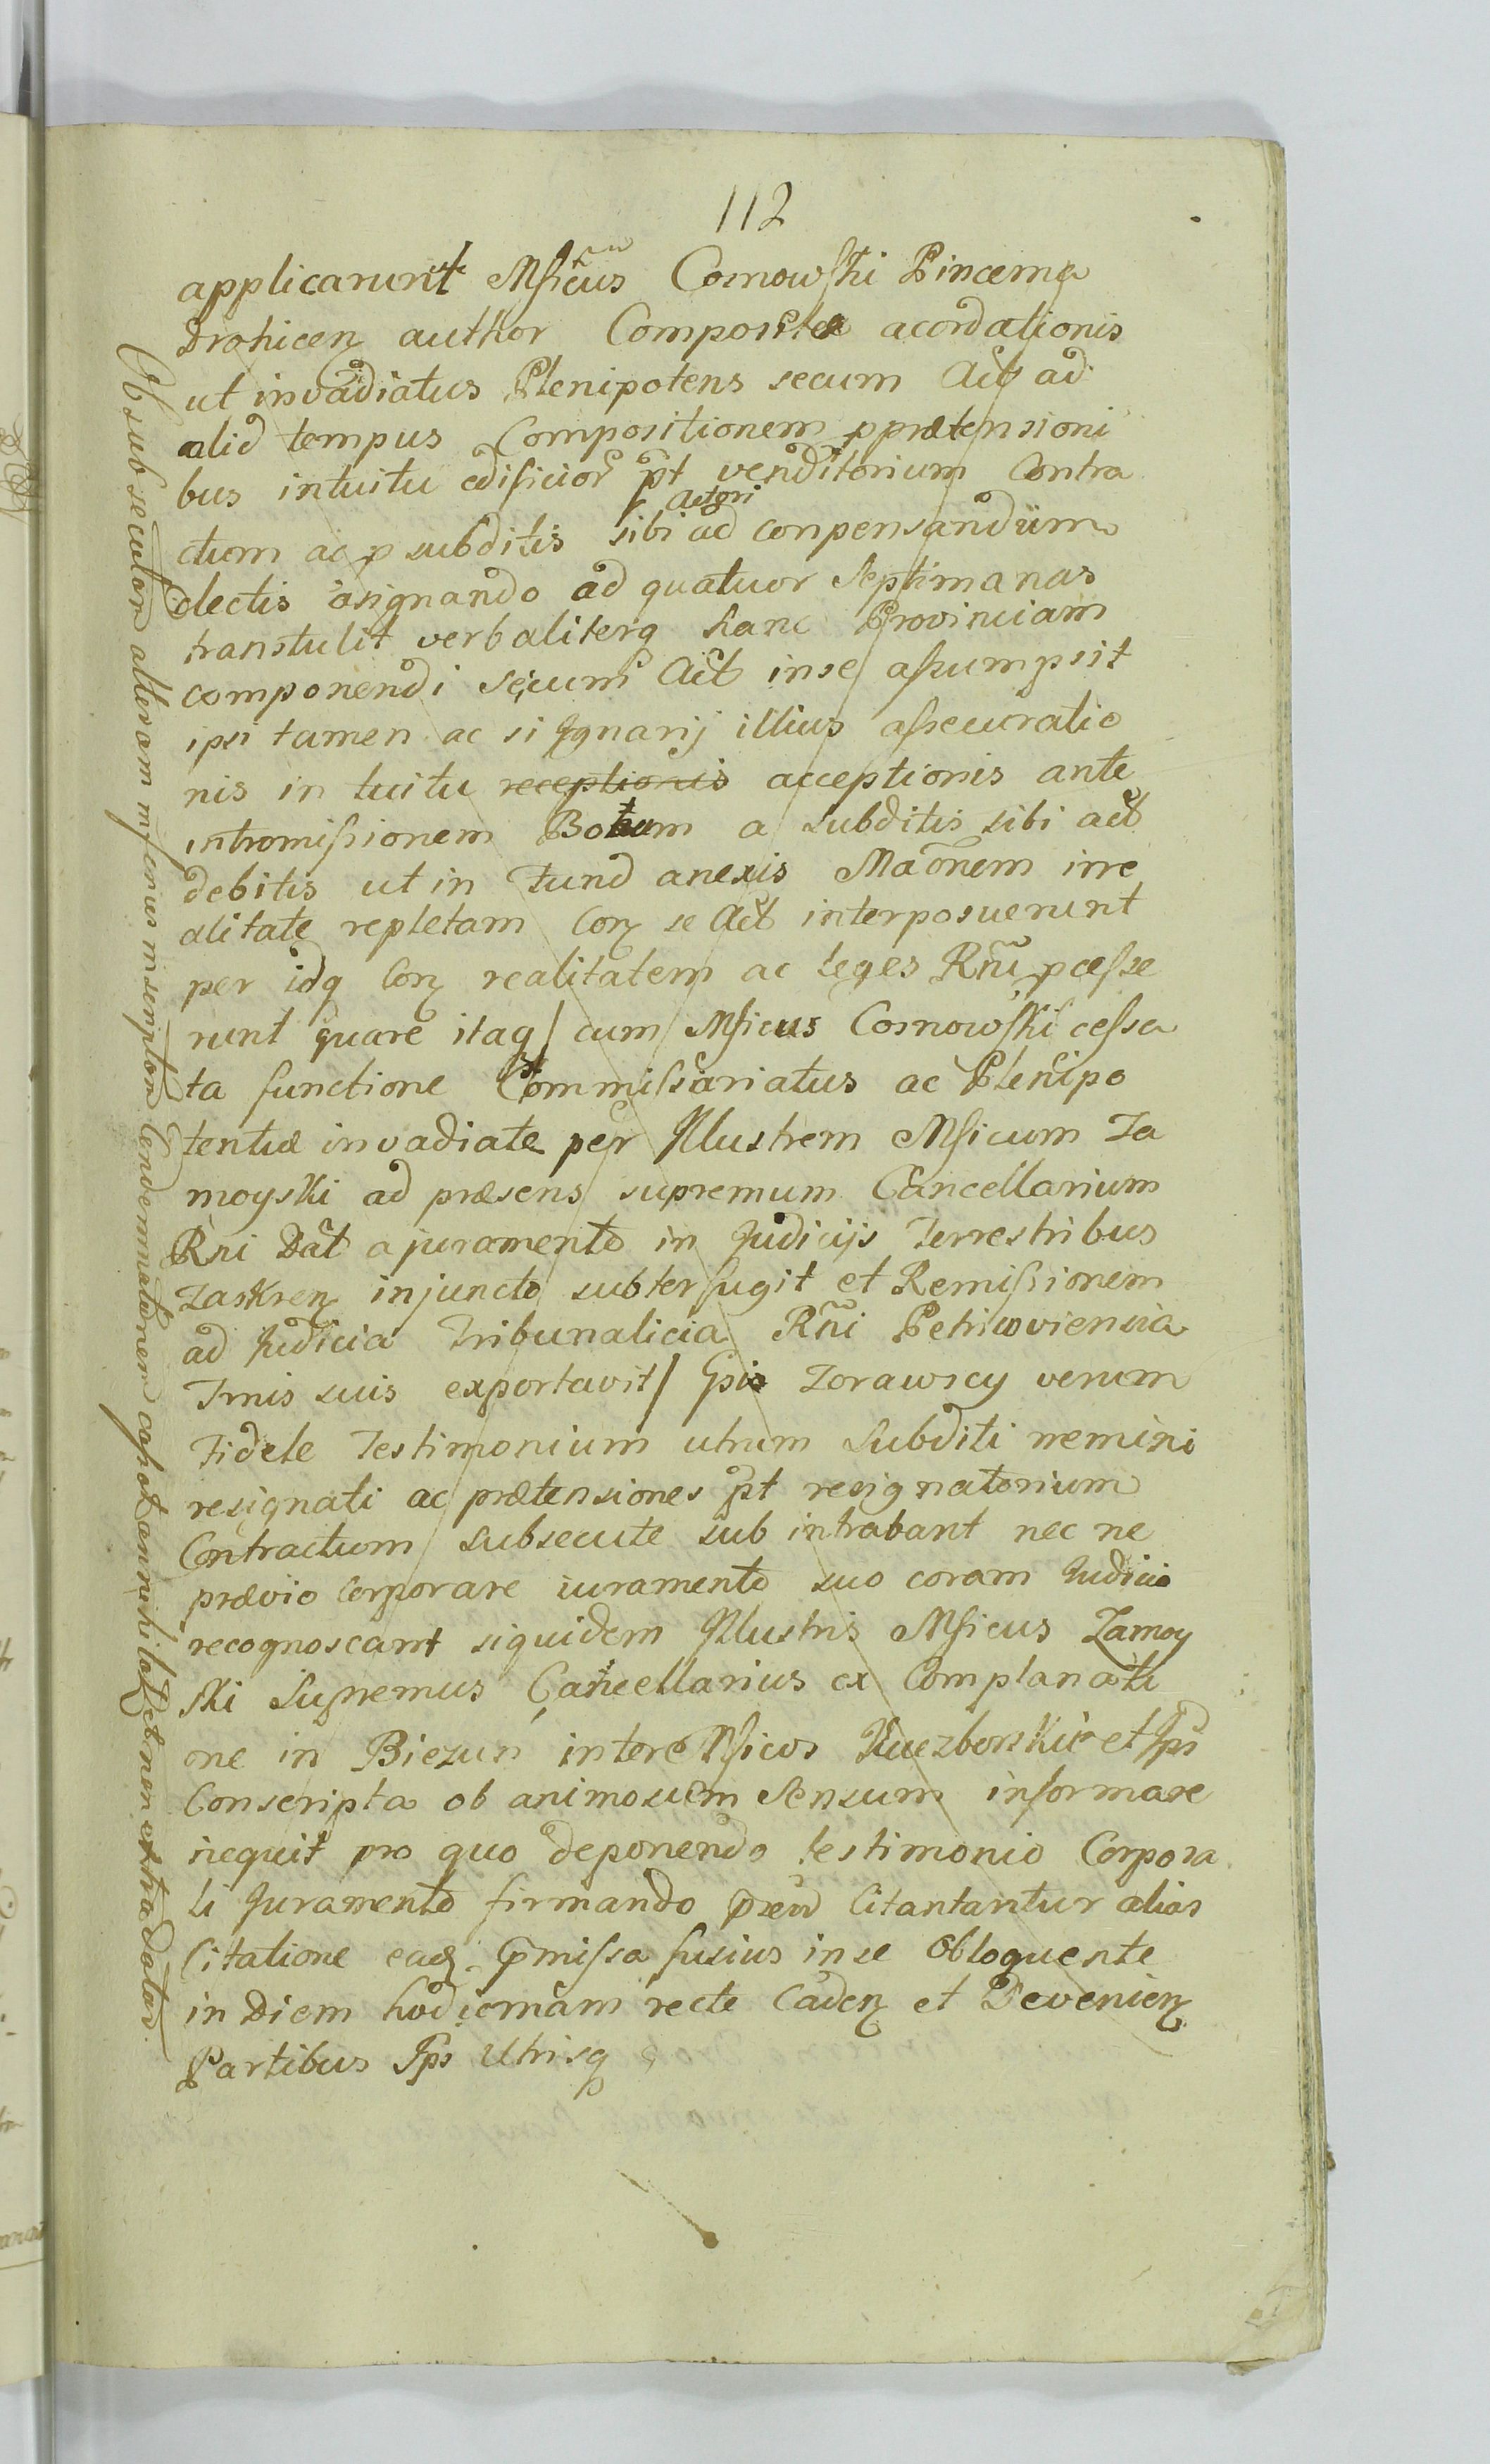 112
applicarunt Mficus Cosnowski Pincerna
Drohicen author Compositae acordationis
ut invadiatus Plenipotens secum Act ad
alid tempus Compositionem p prætensioni
bus intuitu edificior pt venditorium Contra
Actori
ctum ac p subditis sibi ad conpensandum
electis asignando ad quatuor septimanas
transtulit verbaliterq hanc Provinciam
componendi secum Act in se assumpsit
ipsi tamen ac si ignarij illius assecuratio
nis in tuitu receptionis acceptionis ante
intromissionem Botum a subditis sibi act
debitis ut in Fund anexis Maonem irre
alitate repletam Con se Act interposuerunt
per idq Con realitatem ac leges Rni pcesse
runt quare itaq / cum Mficus Cosnowski cessa
ta functione Commissariatus ac Plenipo
tentiæ invadiate per Illustrem Mficum Za
moyski ad præsens supremum Cancellarium
Rni Dat a juramento in Judicijs Terrestribus
Zaskren injuncto subterfugit et Remissionem
ad Judicia Tribunalicia Rni Petricoviensia
Tmis suis exportavit / Ipsis Zorawscy verum
Fidele Testimonium utrum subditi nemini
resignati ac prætensiones pt resignatorium
Contractum subsecute sub intrabant nec ne
prævio Corporare iuramento suo coram Judicio
recognoscant siquidem Illustris Mficus Zamoy
ski Supremus Cancellarius ex Complanati
one in Biezun inter Mficos Kuczborskie et Ips
Conscripta ob animosum Sensum informare
nequit pro quo deponendo testimonio Corpora
li Juramento firmando Citantantur alias
Citatione ead pmissa fusius in se Obloquente
in Diem hodiernam recte Caden et Devenien
Partibus Ips Utrisq
Ob subsecutam alteram inferius inscriptam Condemnationem cassat annihilat et non extradatur